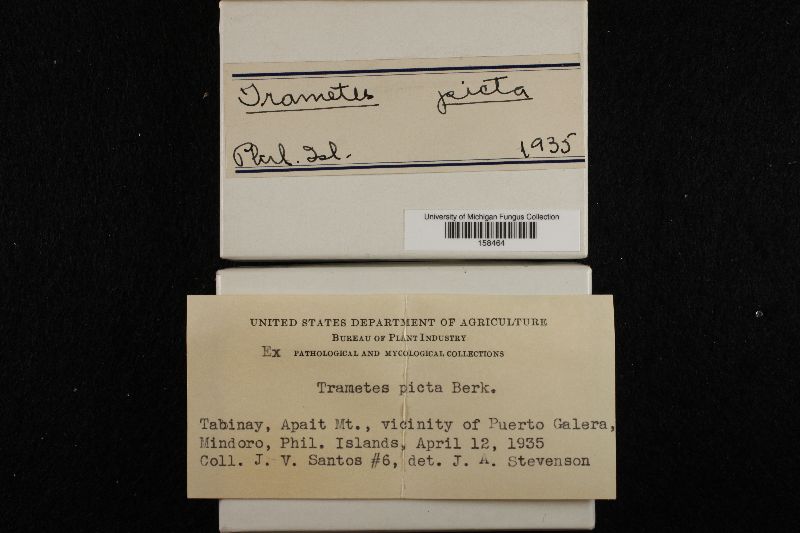 Trametes picta
Phil. Isl. 1935
University of Michigan Fungus Collection
158464
UNITED STATES DEPARTMENT OF AGRICULTURE
BUREAU OF PLANT INDUSTRY
Ex PATHOLOGICAL AND MYCOLOGICAL COLLECTIONS
Trametes picta Berk.
Tabinay, Apait Mt., vicinity of Puerto Galera,
Mindoro, Phil. Islands, April 12, 1935
Coll. J. V. Santos #6, det. J. A. Stevenson